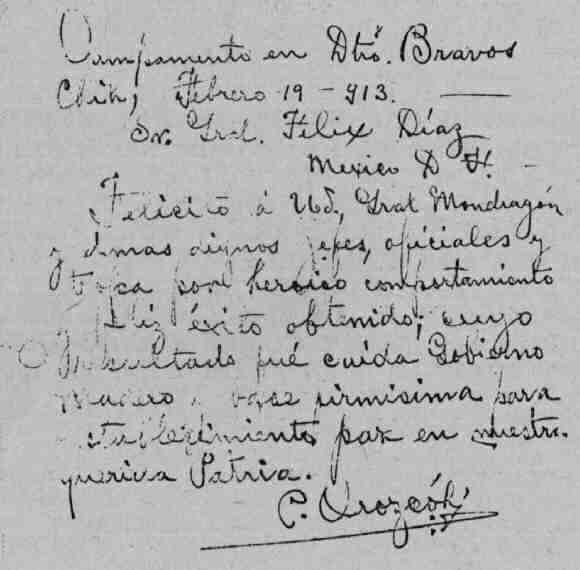 Campamento en Dtrō. Bravos
Chih, Febrero 19 - 913.
Sr. Gral. Félix Díaz
Mexico D. F. -
Felicito á Ud, Gral Mondragón
y demas dignos jefes, oficiales y
tropa por heroico comportamiento
y feliz éxito obtenido; cuyo
resultado fué caída Gobierno
Madero y base firmisima para
establecimiento paz en nuestra
querida Patria.
P. Orozco h.